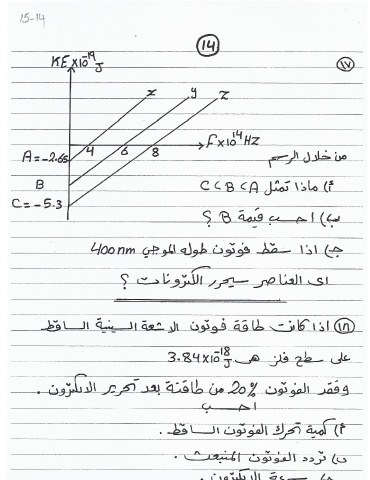 15-14
14
KE×10⁻¹⁹J
١٧
x y z
4 6 8 F×10¹⁴HZ
A=-2.65
B
C=-5.3
من خلال الرسم
أ) ماذا تمثل C < B < A
ب) احسب قيمة B ؟
جـ) اذا سقط فوتون طوله الموجي 400nm
اى العناصر سيحرر الكترونات ؟
١٨ اذا كانت طاقة فوتون الاشعة السينية الساقط
على سطح فلز هى 3.84×10⁻¹⁸J
وفقد الفوتون 20% من طاقتة بعد تحرير الالكترون .
احسب
أ) كمية تحرك الفوتون الساقط .
ب) تردد الفوتون المنبعث .